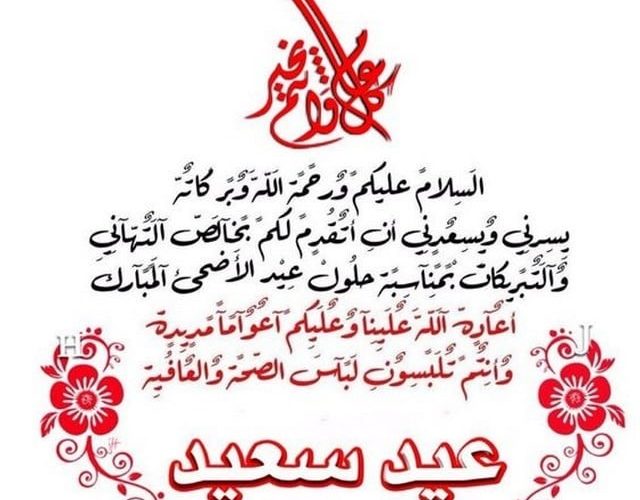 كل عام وانتم بخير
السلام عليكم ورحمة الله وبركاته
يسرني ويسعدني أن أتقدم لكم بخالص التهاني
والتبريكات بمناسبة حلول عيد الأضحى المبارك
أعاده الله علينا وعليكم أعواماً مديدة
وأنتم تلبسون لباس الصحة والعافية
H J
عيد سعيد